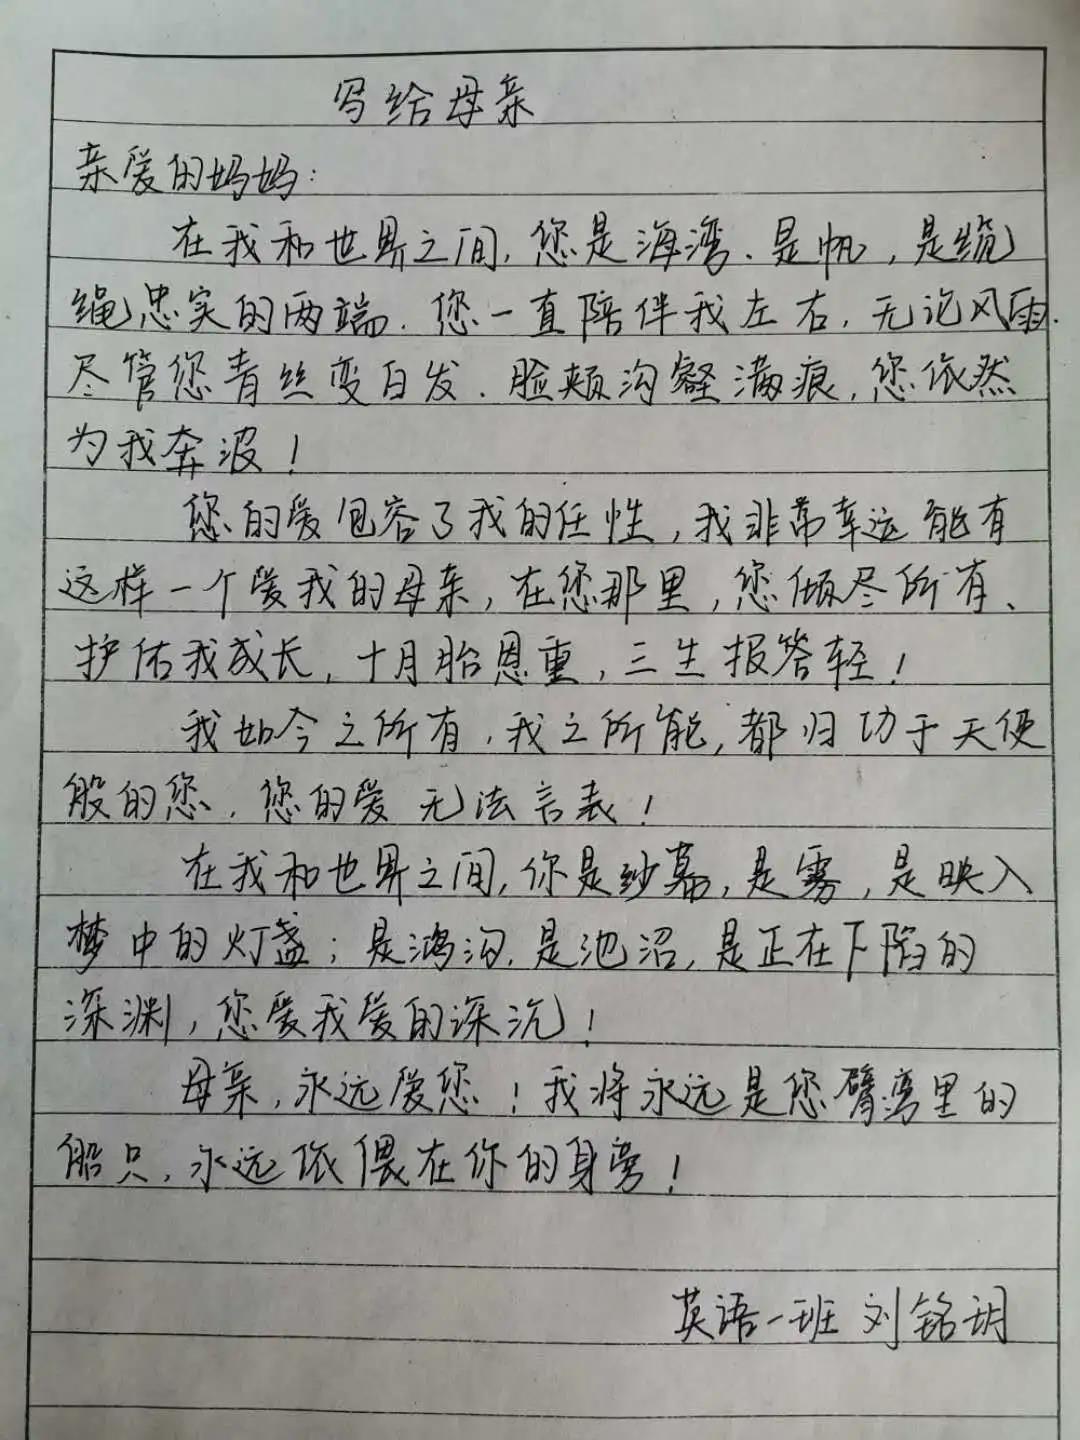 写给母亲
亲爱的妈妈:
在我和世界之间,您是海湾、是帆,是缆
绳忠实的两端.您一直陪伴我左右,无论风雨.
尽管您青丝变白发.脸颊沟壑满痕,您依然
为我奔波!
您的爱包容了我的任性,我非常幸运能有
这样一个爱我的母亲,在您那里,您倾尽所有、
护佑我成长,十月胎恩重,三生报答轻!
我如今之所有,我之所能,都归功于天使
般的您.您的爱无法言表!
在我和世界之间,你是纱幕,是雾,是映入
梦中的灯盏;是鸿沟,是池沼,是正在下陷的
深渊,您爱我爱的深沉!
母亲,永远爱您!我将永远是您臂弯里的
船只,永远依偎在你的身旁!
英语一班 刘铭玥